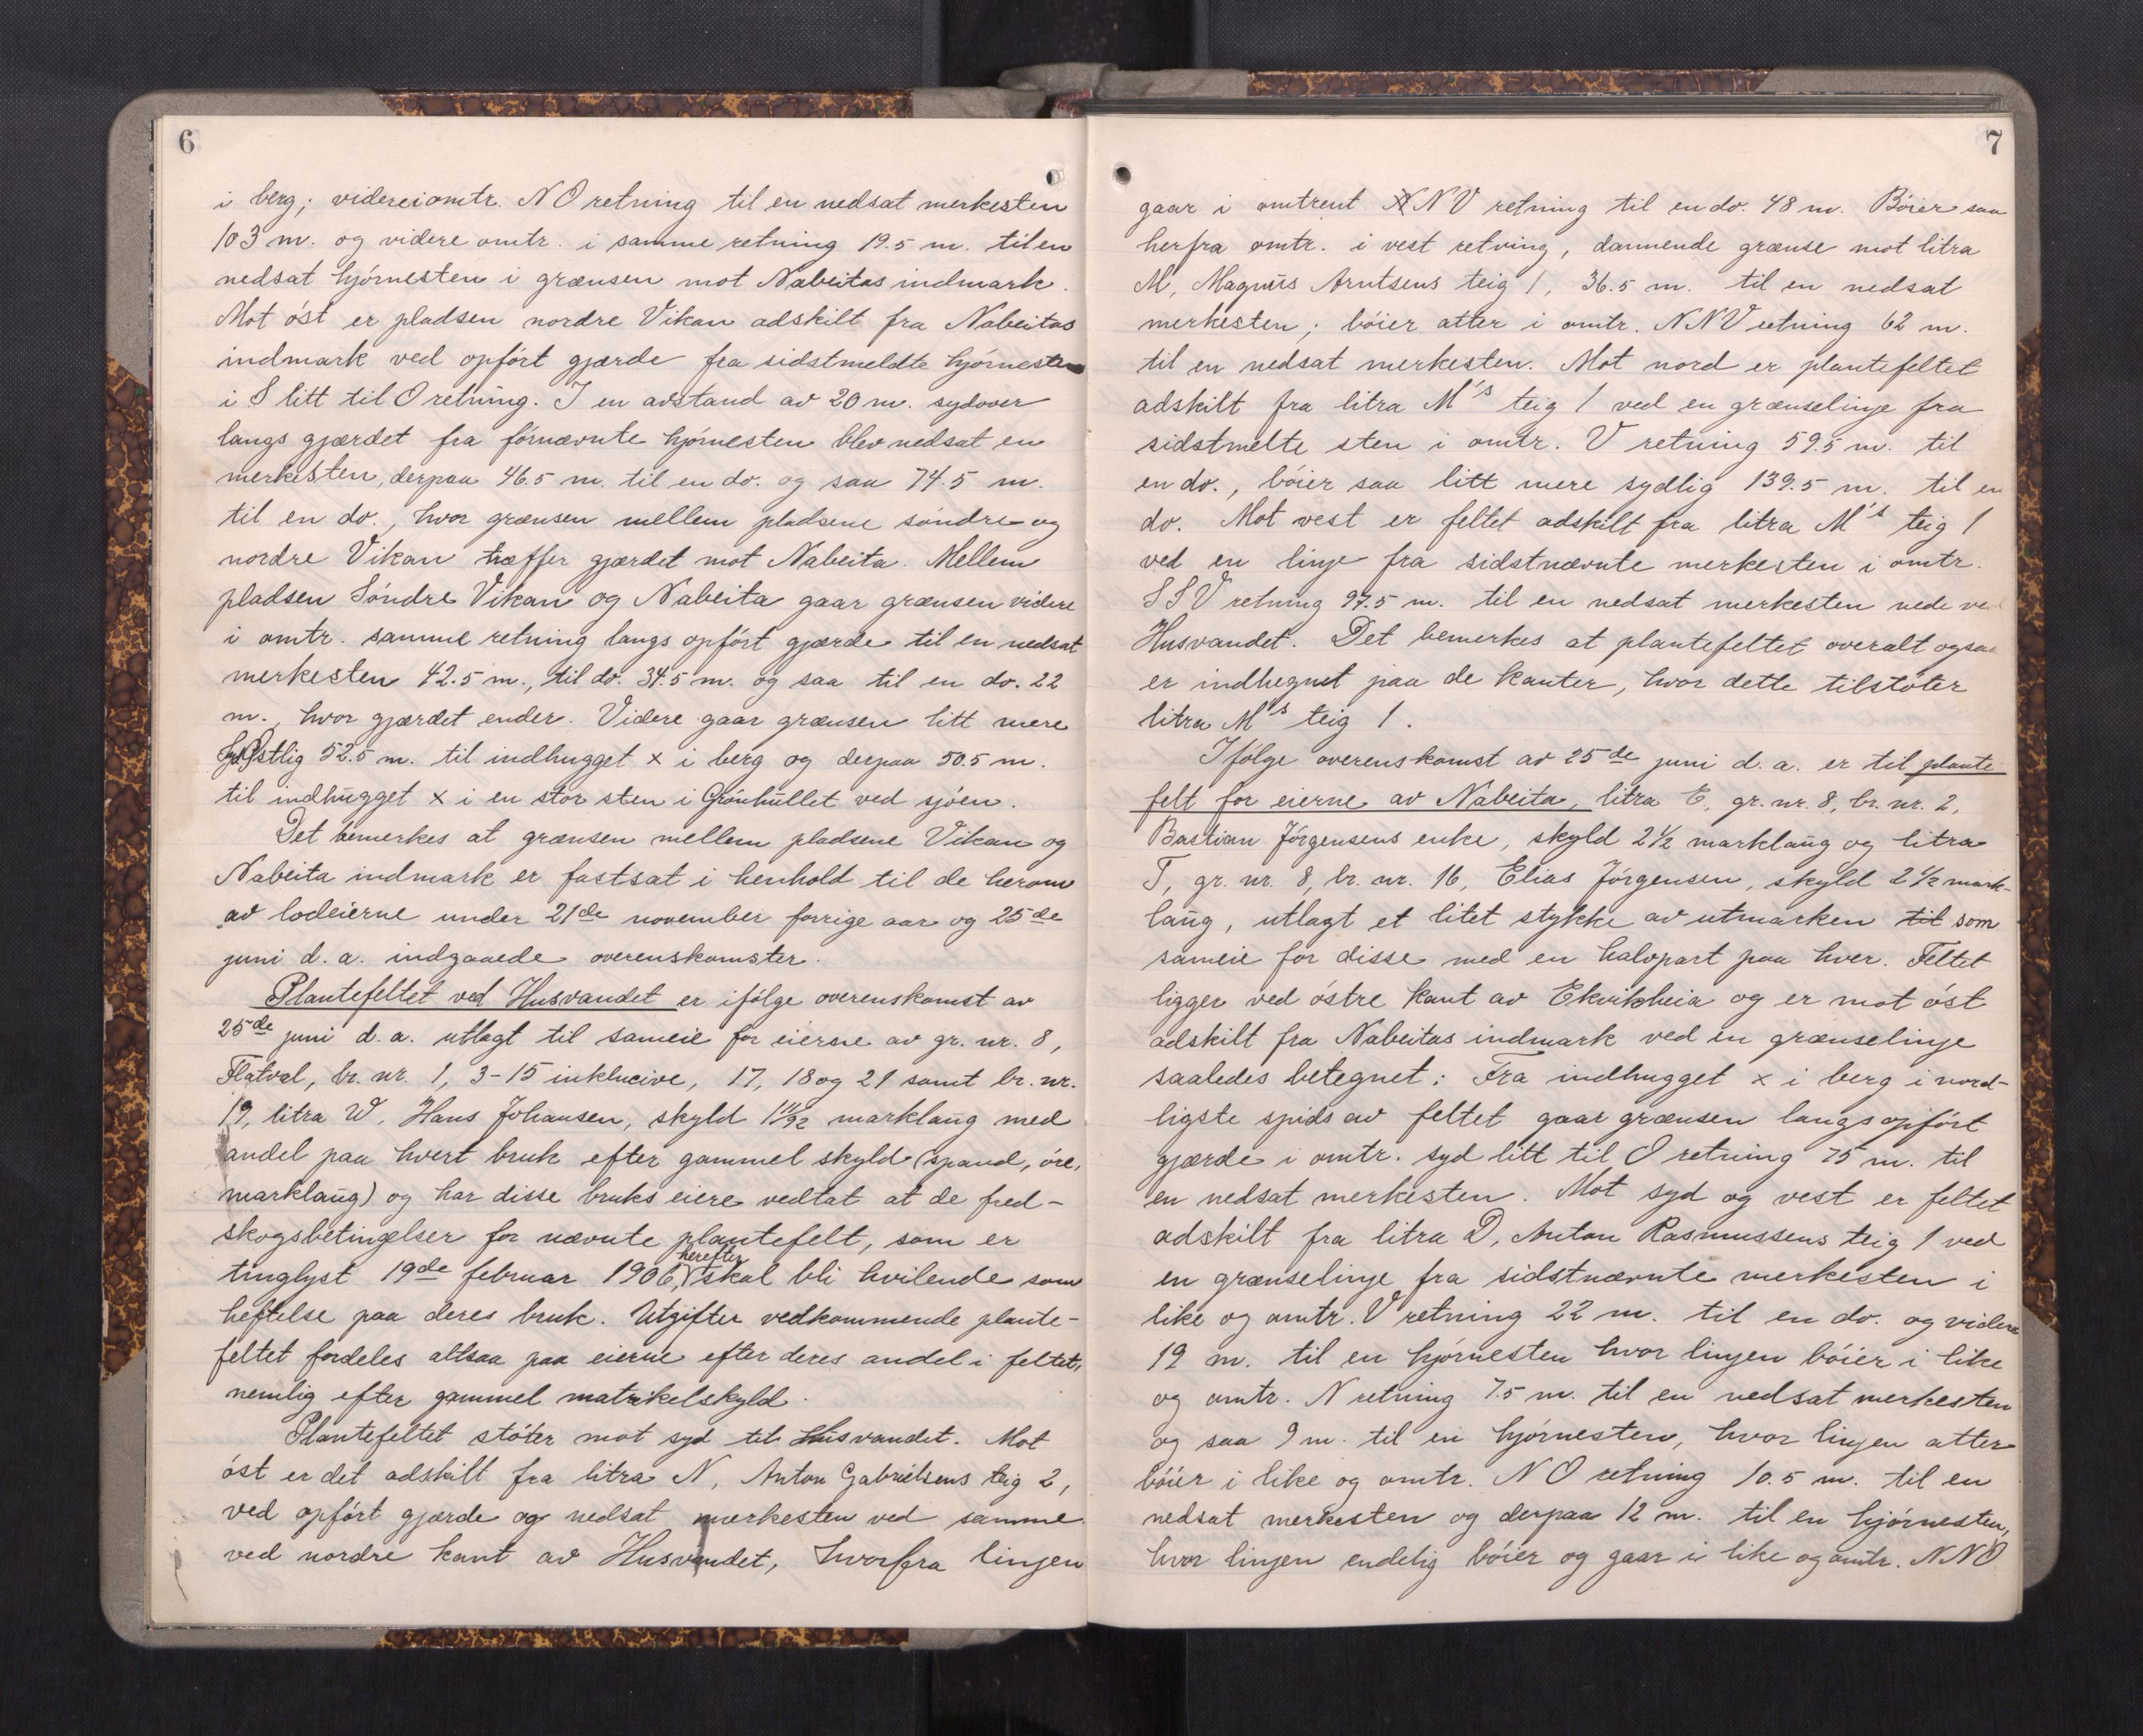 6
i berg; videre i omtr. N O retning til en nedsat merkesten
103 m. og videre omtr. i samme retning 19.5 m. til en
nedsat hjörnesten i grænsen mot Nabeitas indmark.
Mot öst er pladsen nordre Vikan adskilt fra Nabeitas
indmark ved opfört gjærde fra sidstmeldte hjörnesten
i S litt til O retning. I en avstand av 20 m. sydover
langs gjærdet fra förnævnte hjörnesten blev nedsat en
merkesten, derpaa 46.5 m. til en do. og saa 74.5 m.
til en do., hvor grænsen mellem pladsene söndre og
nordre Vikan træffer gjærdet mot Nabeita. Mellem
pladsen Söndre Vikan og Nabeita gaar grænsen videre
i omtr. samme retning langs opfört gjærde til en nedsat
merkesten 42.5 m., til do. 34.5 m. og saa til en do. 22
m., hvor gjærdet ender. Videre gaar grænsen litt mere
sydöstlig 52.5 m. til indhugget x i berg og derpaa 50.5 m.
til indhugget x i en stor sten i Grönhullet ved sjöen.
Det bemerkes at grænsen mellem pladsene Vikan og
Nabeita indmark er fastsat i henhold til de herom
av lodeierne under 21de november forrige aar og 25de
juni d. a. indgaaede overenskomster.
Plantefeltet ved Husvandet er ifölge overenskomst av
25de juni d. a. utlagt til sameie for eierne av gr. nr. 8,
Flatval, br. nr. 1, 3-15 inklucive, 17, 18 og 21 samt br. nr.
19, litra W, Hans Johansen, skyld 1 11/92 marklaug med
andel paa hvert bruk efter gammel skyld (spand, öre,
marklaug) og har disse bruks eiere vedtat at de fred-
skogsbetingelser for nævnte plantefelt, som er
tinglyst 19de februar 1906, herefter skal bli hvilende som
heftelse paa deres bruk. Utgifter vedkommende plante-
feltet fordeles altsaa paa eierne efter deres andel i feltet,
nemlig efter gammel matrikelskyld.
Plantefeltet stöter mot syd til Husvandet. Mot
öst er det adskilt fra litra N, Anton Gabrielsens teig 2,
ved opfört gjærde og nedsat merkesten ved samme
ved nordre kant av Husvandet, hvorfra linjen
7
gaar i omtrent NNV retning til en do. 48 m. Böier saa
herfra omtr. i vest retning, dannende grænse mot litra
M, Magnus Arntsens teig 1, 36.5 m. til en nedsat
merkesten; böier atter i omtr. NNV retning 62 m.
til en nedsat merkesten. Mot nord er plantefeltet
adskilt fra litra M's teig 1 ved en grænselinje fra
sidstmelte sten i omtr. V retning 59.5 m. til
en do., böier saa litt mere sydlig 139.5 m. til en
do. Mot vest er feltet adskilt fra litra M's teig 1
ved en linje fra sidstnævnte merkesten i omtr.
SSV retning 97.5 m. til en nedsat merkesten nede ved
Husvandet. Det bemerkes at plantefeltet overalt ogsaa
er indhegnet paa de kanter, hvor dette tilstöter
litra M's teig 1.
Ifölge overenskomst av 25de juni d. a. er til plante
felt for eierne av Nabeita, litra E, gr. nr. 8, br. nr. 2,
Bastian Jörgensens enke, skyld 2 1/2 marklaug og litra
T, gr. nr. 8, br. nr. 16, Elias Jörgensen, skyld 2 1/2 mark-
laug, utlagt et litet stykke av utmarken til som
sameie for disse med en halvpart paa hver. Feltet
ligger ved östre kant av Ekvikheia og er mot öst
adskilt fra Nabeitas indmark ved en grænselinje
saaledes betegnet: Fra indhugget x i berg i nord-
ligste spids av feltet gaar grænsen langs opfört
gjærde i omtr. syd litt til O retning 75 m. til
en nedsat merkesten. Mot syd og vest er feltet
adskilt fra litra D, Anton Rasmussens teig 1 ved
en grænselinje fra sidstnævnte merkesten i
like og omtr. V retning 22 m. til en do. og videre
19 m. til en hjörnesten hvor linjen böier i like
og omtr. N retning 7.5 m. til en nedsat merkesten
og saa 9 m. til en hjörnesten, hvor linjen atter
böier i like og omtr. N O retning 10.5 m. til en
nedsat merkesten og derpaa 12 m. til en hjörnesten,
hvor linjen endelig böier og gaar i like og omtr. NNO